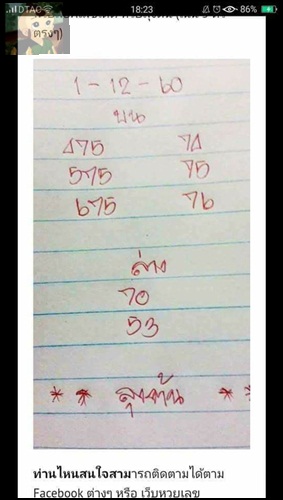 DTAC 18:23 86%
ตรงๆ)
1-12-60
บน
475 74
575 75
675 76
ล่าง
70
53
* * ลุงจัน * *
ท่านไหนสนใจสามารถติดตามได้ตาม
Facebook ต่างๆ หรือ เว็บหวยเลข